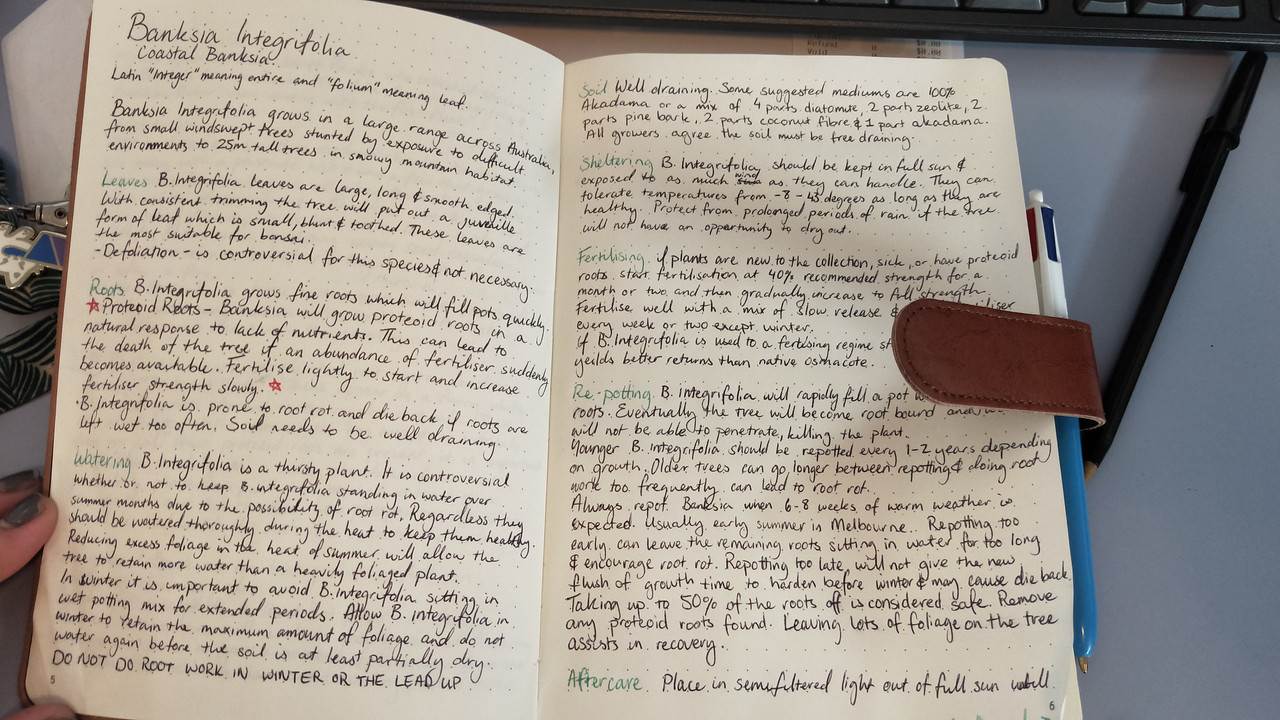 Banksia Integrifolia
Coastal Banksia
Latin "Integer" meaning entire and "folium" meaning leaf.
Banksia Integrifolia grows in a large range across Australia,
from small windswept trees stunted by exposure to difficult
environments to 25m tall trees in snowy mountain habitat.
Leaves B.Integrifolia leaves are large, long & smooth edged.
With consistent trimming the tree will put out a juvenile
form of leaf which is small, blunt & toothed. These leaves are
the most suitable for bonsai.
-Defoliation- is controversial for this species & not necessary.
Roots B.Integrifolia grows fine roots which will fill pots quickly.
Proteoid Roots - Banksia will grow proteoid roots in a
natural response to lack of nutrients. This can lead to
the death of the tree if an abundance of fertiliser suddenly
becomes available. Fertilise lightly to start and increase
fertiliser strength slowly.
·B.Integrifolia is prone to root rot and die back if roots are
left wet too often. Soil needs to be well draining.
Watering B.Integrifolia is a thirsty plant. It is controversial
whether or not to keep B.integrifolia standing in water over
summer months due to the possibility of root rot. Regardless they
should be watered thoroughly during the heat to keep them healthy.
Reducing excess foliage in the heat of summer will allow the
tree to retain more water than a heavily foliaged plant.
In winter it is important to avoid B.Integrifolia sitting in
wet potting mix for extended periods. Allow B.integrifolia in
winter to retain the maximum amount of foliage and do not
water again before the soil is at least partially dry.
DO NOT DO ROOT WORK IN WINTER OR THE LEAD UP
5
Refund 0 $0.00
Void
Soil Well draining. Some suggested mediums are 100%
Akadama or a mix of 4 parts diatomite, 2 parts zeolite, 2
parts pine bark, 2 parts coconut fibre & 1 part akadama.
All growers agree the soil must be free draining.
Sheltering B.Integrifolia should be kept in full sun &
exposed to as much wind as they can handle. They can
tolerate temperatures from -8 - 45 degrees as long as they are
healthy. Protect from prolonged periods of rain if the tree
will not have an opportunity to dry out.
Fertilising. if plants are new to the collection, sick, or have proteoid
roots start fertilisation at 40% recommended strength for a
month or two and then gradually increase to full strength.
Fertilise well with a mix of slow release &
every week or two except winter.
If B.Integrifolia is used to a fertising regime
yeilds better returns than native osmocote.
Re-potting. B.integrifolia will rapidly fill a pot
roots. Eventually the tree will become root bound and
will not be able to penetrate, killing the plant.
Younger B.integrifolia should be repotted every 1-2 years depending
on growth. Older trees can go longer between repotting & doing root
work too frequently can lead to root rot.
Always repot Banksia when 6-8 weeks of warm weather is
expected. Usually early summer is Melbourne. Repotting too
early can leave the remaining roots sitting in water for too long
& encourage root rot. Repotting too late will not give the new
flush of growth time to harden before winter & may cause die back.
Taking up to 50% of the roots off is considered safe. Remove
any proteoid roots found. Leaving lots of foliage on the tree
assists in recovery.
Aftercare Place in semifiltered light out of full sun
6